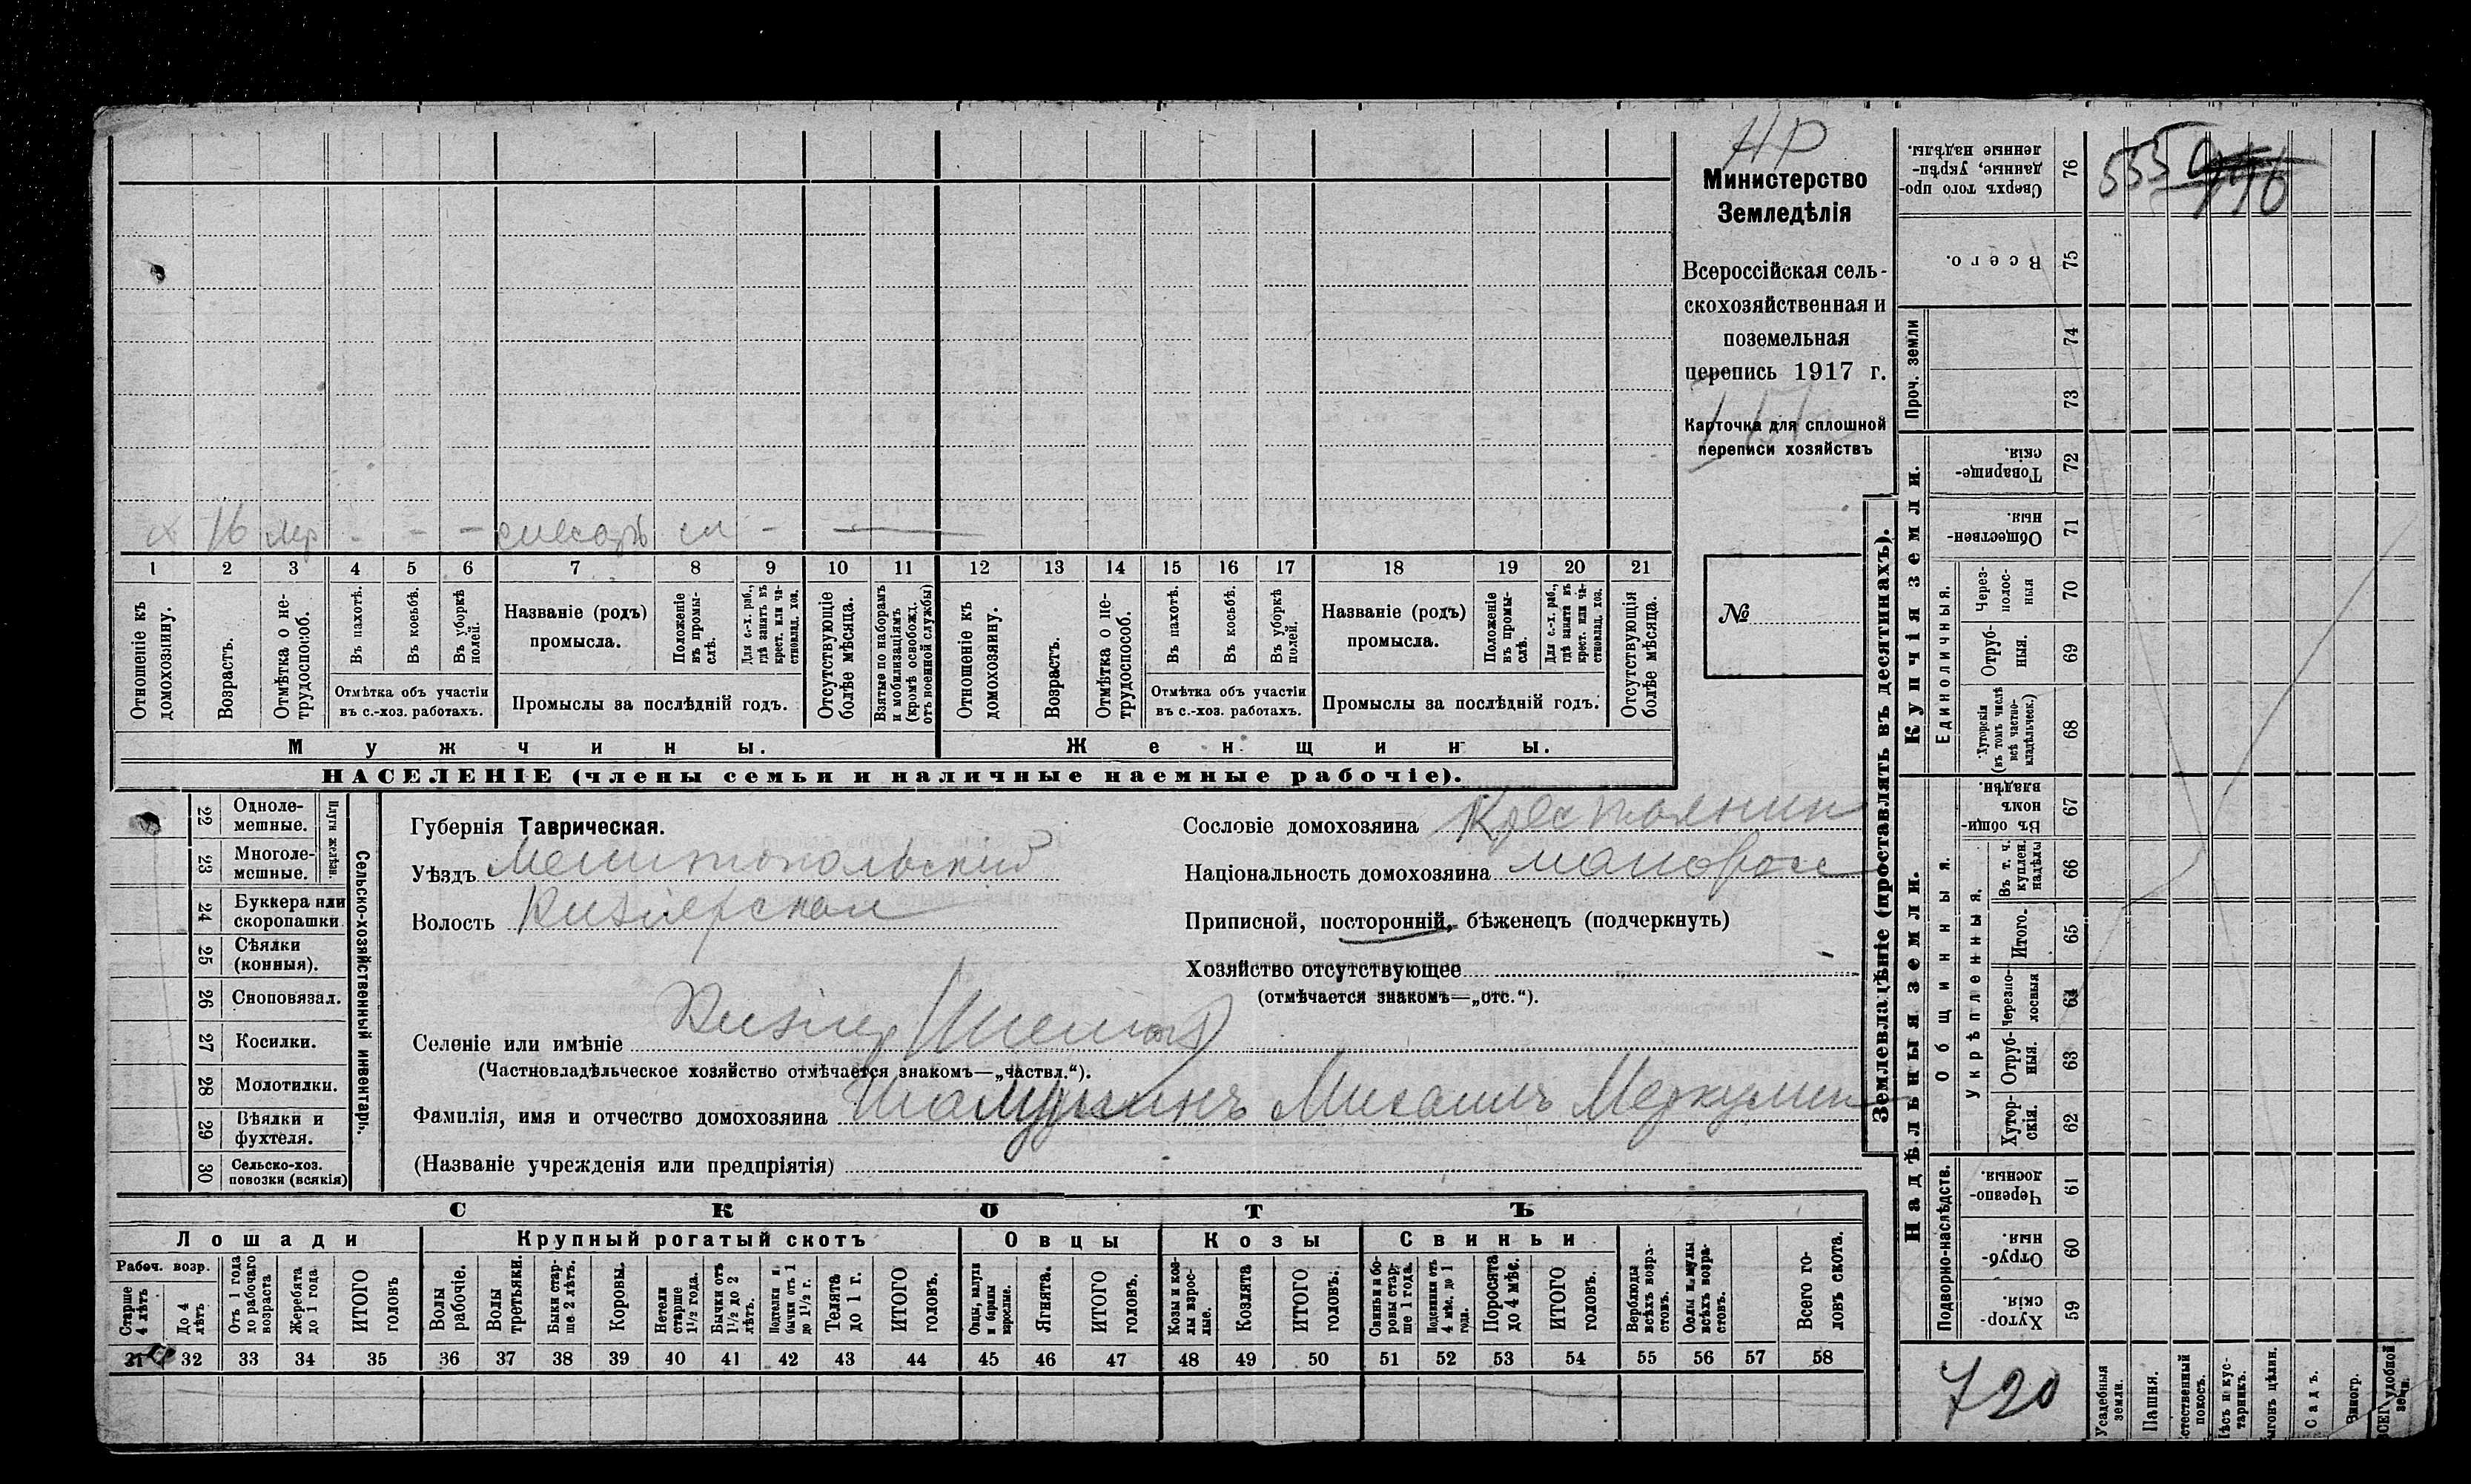 НР
Министерство
Земледѣлія
Всероссійская сель-
скохозяйственная и
поземельная
перепись 1917 г.
Карточка для сплошной
переписи хозяйствъ
№
х 16 - - - слесарь -
1 2 3 4 5 6 7 8 9 10 11 12 13 14 15 16 17 18 19 20 21
Отношеніе къ домохозяину.
Возрастъ.
Отмѣтка о не-трудоспособ.
Въ пахотѣ.
Въ косьбѣ.
Въ уборкѣ полей.
Отмѣтка объ участіи
въ с.-хоз. работахъ.
Названіе (родъ)
промысла.
Положеніе въ промы-слѣ.
Для с.-х. раб., гдѣ занятъ въ крест. или ча-стновлад. хоз.
Промыслы за послѣдній годъ.
Отсутствующіе болѣе мѣсяца.
Взятые по наборамъ и мобилизаціямъ (кромѣ освобожд. отъ военной службы)
Отношеніе къ домохозяину.
Возрастъ.
Отмѣтка о не-трудоспособ.
Въ пахотѣ.
Въ косьбѣ.
Въ уборкѣ полей.
Отмѣтка объ участіи
въ с.-хоз. работахъ.
Названіе (родъ)
промысла.
Положеніе въ промы-слѣ.
Для с.-х. раб., гдѣ занята въ крест. или ча-стновлад. хоз.
Промыслы за послѣдній годъ.
Отсутствующія болѣе мѣсяца.
Мужчины.
Женщины.
НАСЕЛЕНІЕ (члены семьи и наличные наемные рабочіе).
22 Одноле-мешные.
23 Многоле-мешные.
Плуги желѣзн.
24 Буккера или скоропашки
25 Сѣялки (конныя).
26 Сноповязал.
27 Косилки.
28 Молотилки.
29 Вѣялки и фухтеля.
30 Сельско-хоз. повозки (всякія)
Сельско-хозяйственный инвентарь.
Губернія Таврическая.
Уѣздъ Мелитопольский
Волость Кизиярская
Сословіе домохозяина Крестьянин
Національность домохозяина малоросс
Приписной, посторонній, бѣженецъ (подчеркнуть)
Хозяйство отсутствующее -
(отмѣчается знакомъ—„отс.“).
Селеніе или имѣніе Кизияр
(Частновладѣльческое хозяйство отмѣчается знакомъ—„частвл.“).
Фамилія, имя и отчество домохозяина Михаилъ
(Названіе учрежденія или предпріятія) -
СКОТЪ
Лошади
Рабоч. возр.
Старше 4 лѣтъ
До 4 лѣтъ
Отъ 1 года до рабочаго возраста
Жеребята до 1 года
ИТОГО головъ
Крупный рогатый скотъ
Волы рабочіе.
Волы третьяки.
Быки стар-ше 2 лѣтъ.
Коровы.
Нетели старше 1½ года.
Бычки отъ 1½ до 2 лѣтъ.
Подтелки и бычки отъ 1 до 1½ г.
Телята до 1 г.
ИТОГО головъ.
Овцы
Овцы, валухи и бараны взрослые.
Ягнята.
ИТОГО головъ.
Козы
Козы и коз-лы взрос-лые.
Козлята
ИТОГО головъ.
Свиньи
Свиньи и бо-ровы стар-ше 1 года.
Подсвинки отъ 4 мѣс. до 1 года.
Поросята до 4 мѣс.
ИТОГО головъ.
Верблюды всѣхъ возра-стовъ.
Ослы и мулы всѣхъ возра-стовъ.
Всего го-ловъ скота.
31 32 33 34 35 36 37 38 39 40 41 42 43 44 45 46 47 48 49 50 51 52 53 54 55 56 57 58
Землевладѣніе (проставлять въ десятинахъ).
Сверхъ того про-данные, укрѣп-ленные надѣлы. 76
555
Всего. 75
Проч. земли
74
73
Купчія земли.
Товарище-скія. 72
Обществен-ныя. 71
Единоличныя.
Через-полос-ныя 70
Отруб-ныя. 69
Хуторскія (въ томъ числѣ всѣ частно-владѣльческ.) 68
Надѣльныя земли.
Общинныя.
Въ общи-номъ владѣн. 67
Укрѣпленныя.
Въ т. ч. куплен. надѣлы 66
Итого. 65
Черезпо-лосныя 64
Отруб-ныя. 63
Хутор-скія. 62
Подворно-наслѣдств.
Черезпо-лосныя. 61
Отруб-ныя. 60
Хутор-скія. 59
720
Усадебныя земли.
Пашня.
стественный покосъ.
Лѣсъ и кус-тарникъ.
ыгонъ цѣлин.
Садъ.
Виногр.
ВСЕГ удобной